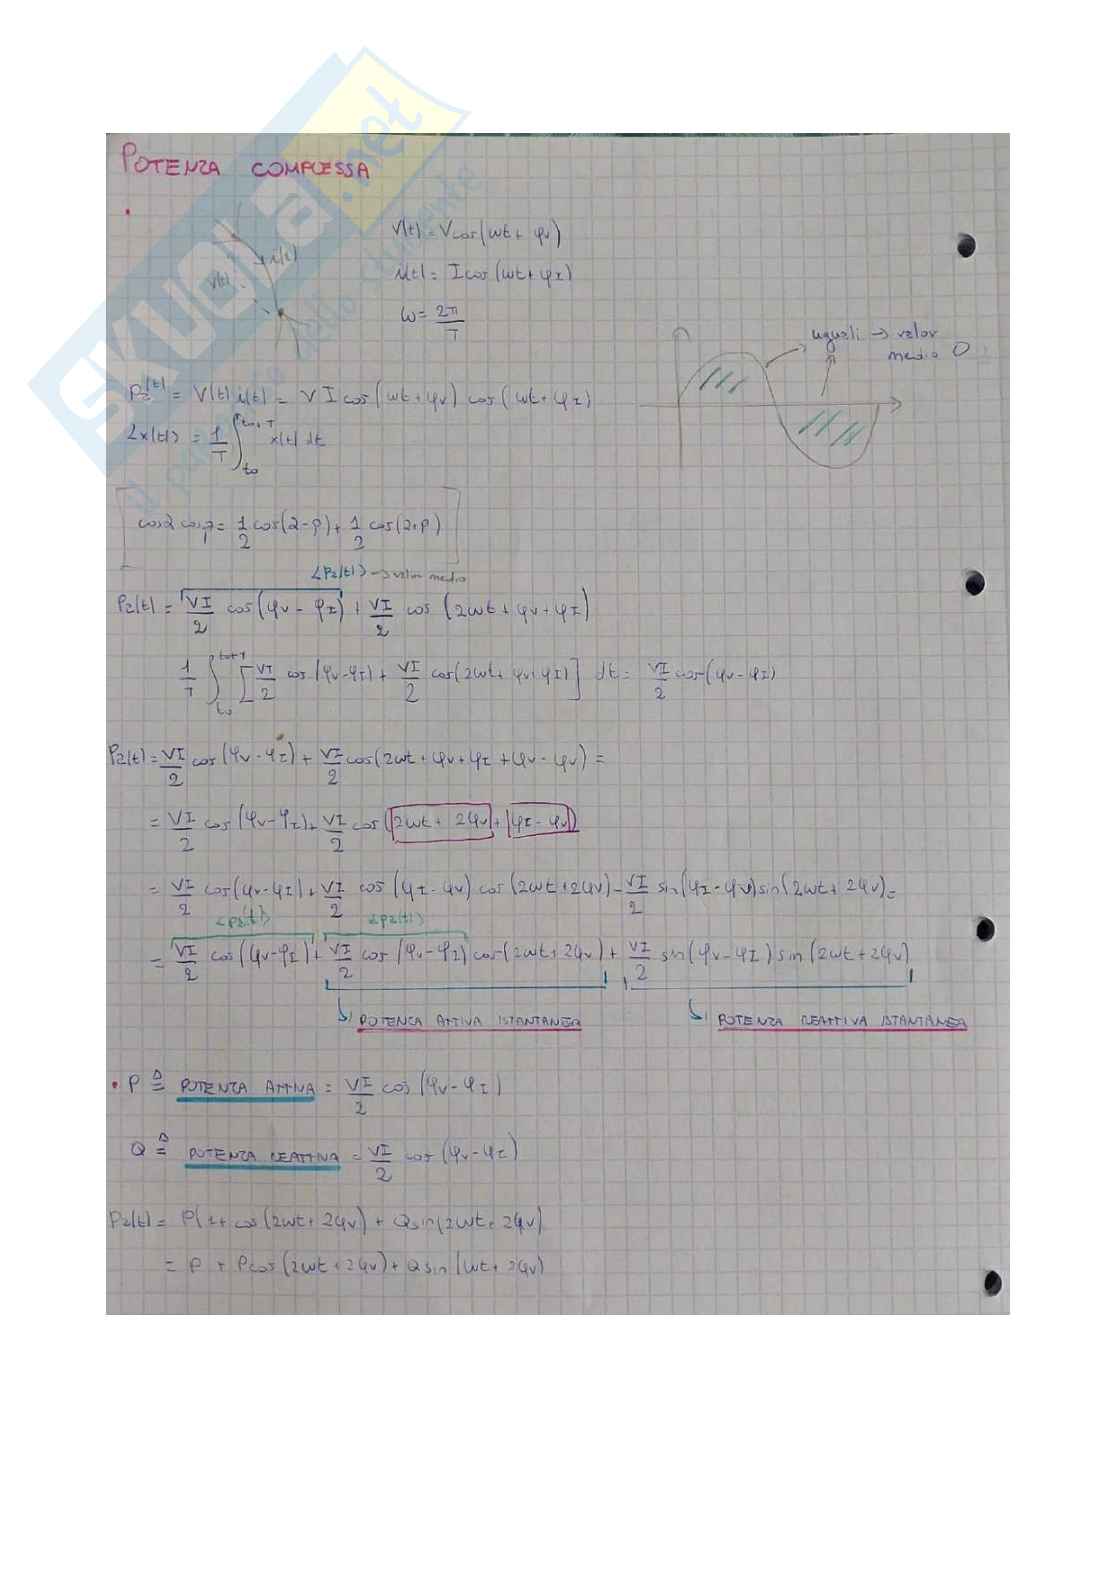 SKUOLA.net
POTENZA COMPLESSA
V(t) = V cos(ωt + φv)
i(t)
V(t)
i(t) = I cos(ωt + φI)
ω = 2π/T
uguali → valor
medio 0
P2(t) = V(t) i(t) = V I cos(ωt + φv) cos(ωt + φI)
<x(t)> = 1/T ∫t0^t0+T x(t) dt
[cosα cosβ = 1/2 cos(α-β) + 1/2 cos(α+β)]
<P2(t)> → valor medio
P2(t) = VI/2 cos(φv - φI) + VI/2 cos(2ωt + φv + φI)
1/T ∫t0^t0+T [VI/2 cos(φv - φI) + VI/2 cos(2ωt + φv + φI)] dt = VI/2 cos(φv - φI)
P2(t) = VI/2 cos(φv - φI) + VI/2 cos(2ωt + φv + φI + φv - φv) =
= VI/2 cos(φv - φI) + VI/2 cos(2ωt + 2φv + φI - φv)
= VI/2 cos(φv - φI) + VI/2 cos(φI - φv) cos(2ωt + 2φv) - VI/2 sin(φI - φv) sin(2ωt + 2φv) =
<P2(t)> <P2(t)>
= VI/2 cos(φv - φI) + VI/2 cos(φv - φI) cos(2ωt + 2φv) + VI/2 sin(φv - φI) sin(2ωt + 2φv)
POTENZA ATTIVA ISTANTANEA POTENZA REATTIVA ISTANTANEA
• P ≜ POTENZA ATTIVA = VI/2 cos(φv - φI)
Q ≜ POTENZA REATTIVA = VI/2 cos(φv - φI)
P2(t) = P(1 + cos(2ωt + 2φv) + Q sin(2ωt + 2φv)
= P + P cos(2ωt + 2φv) + Q sin(ωt + 2φv)